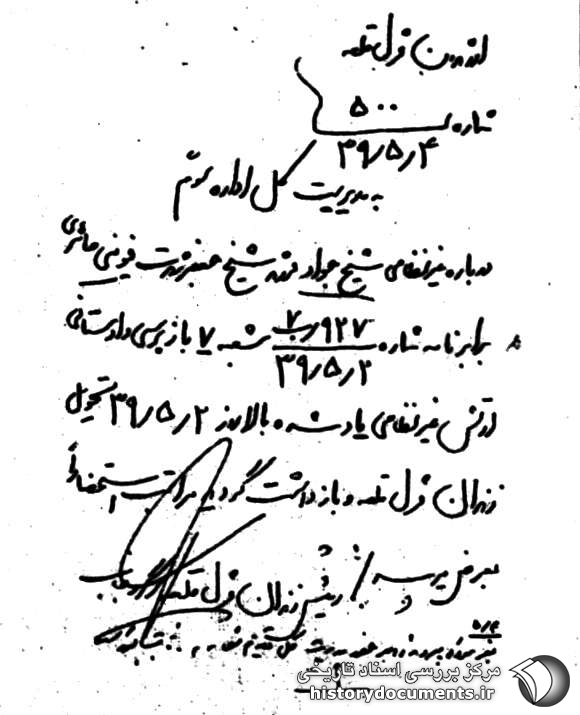 از زندان قزل قلعه
شماره ۵۰۰
۳۹/۵/۴
به مدیریت کل اداره سوم
درباره غیرنظامی شیخ جواد فرزند شیخ شهرت فومنی حائری
برابر نامه شماره ۹۲۷/ب۷ شعبه ۷ بازپرسی دادستانی
۳۹/۵/۲
ارتش غیرنظامی یاد شده بالا روز ۳۹/۵/۲ تحویل
زندان قزل قلعه و بازداشت گردید مراتب استحضاراً
بعرض میرسد
رئیس زندان قزل قلعه
مرکز بررسی اسناد تاریخی
historydocuments.ir